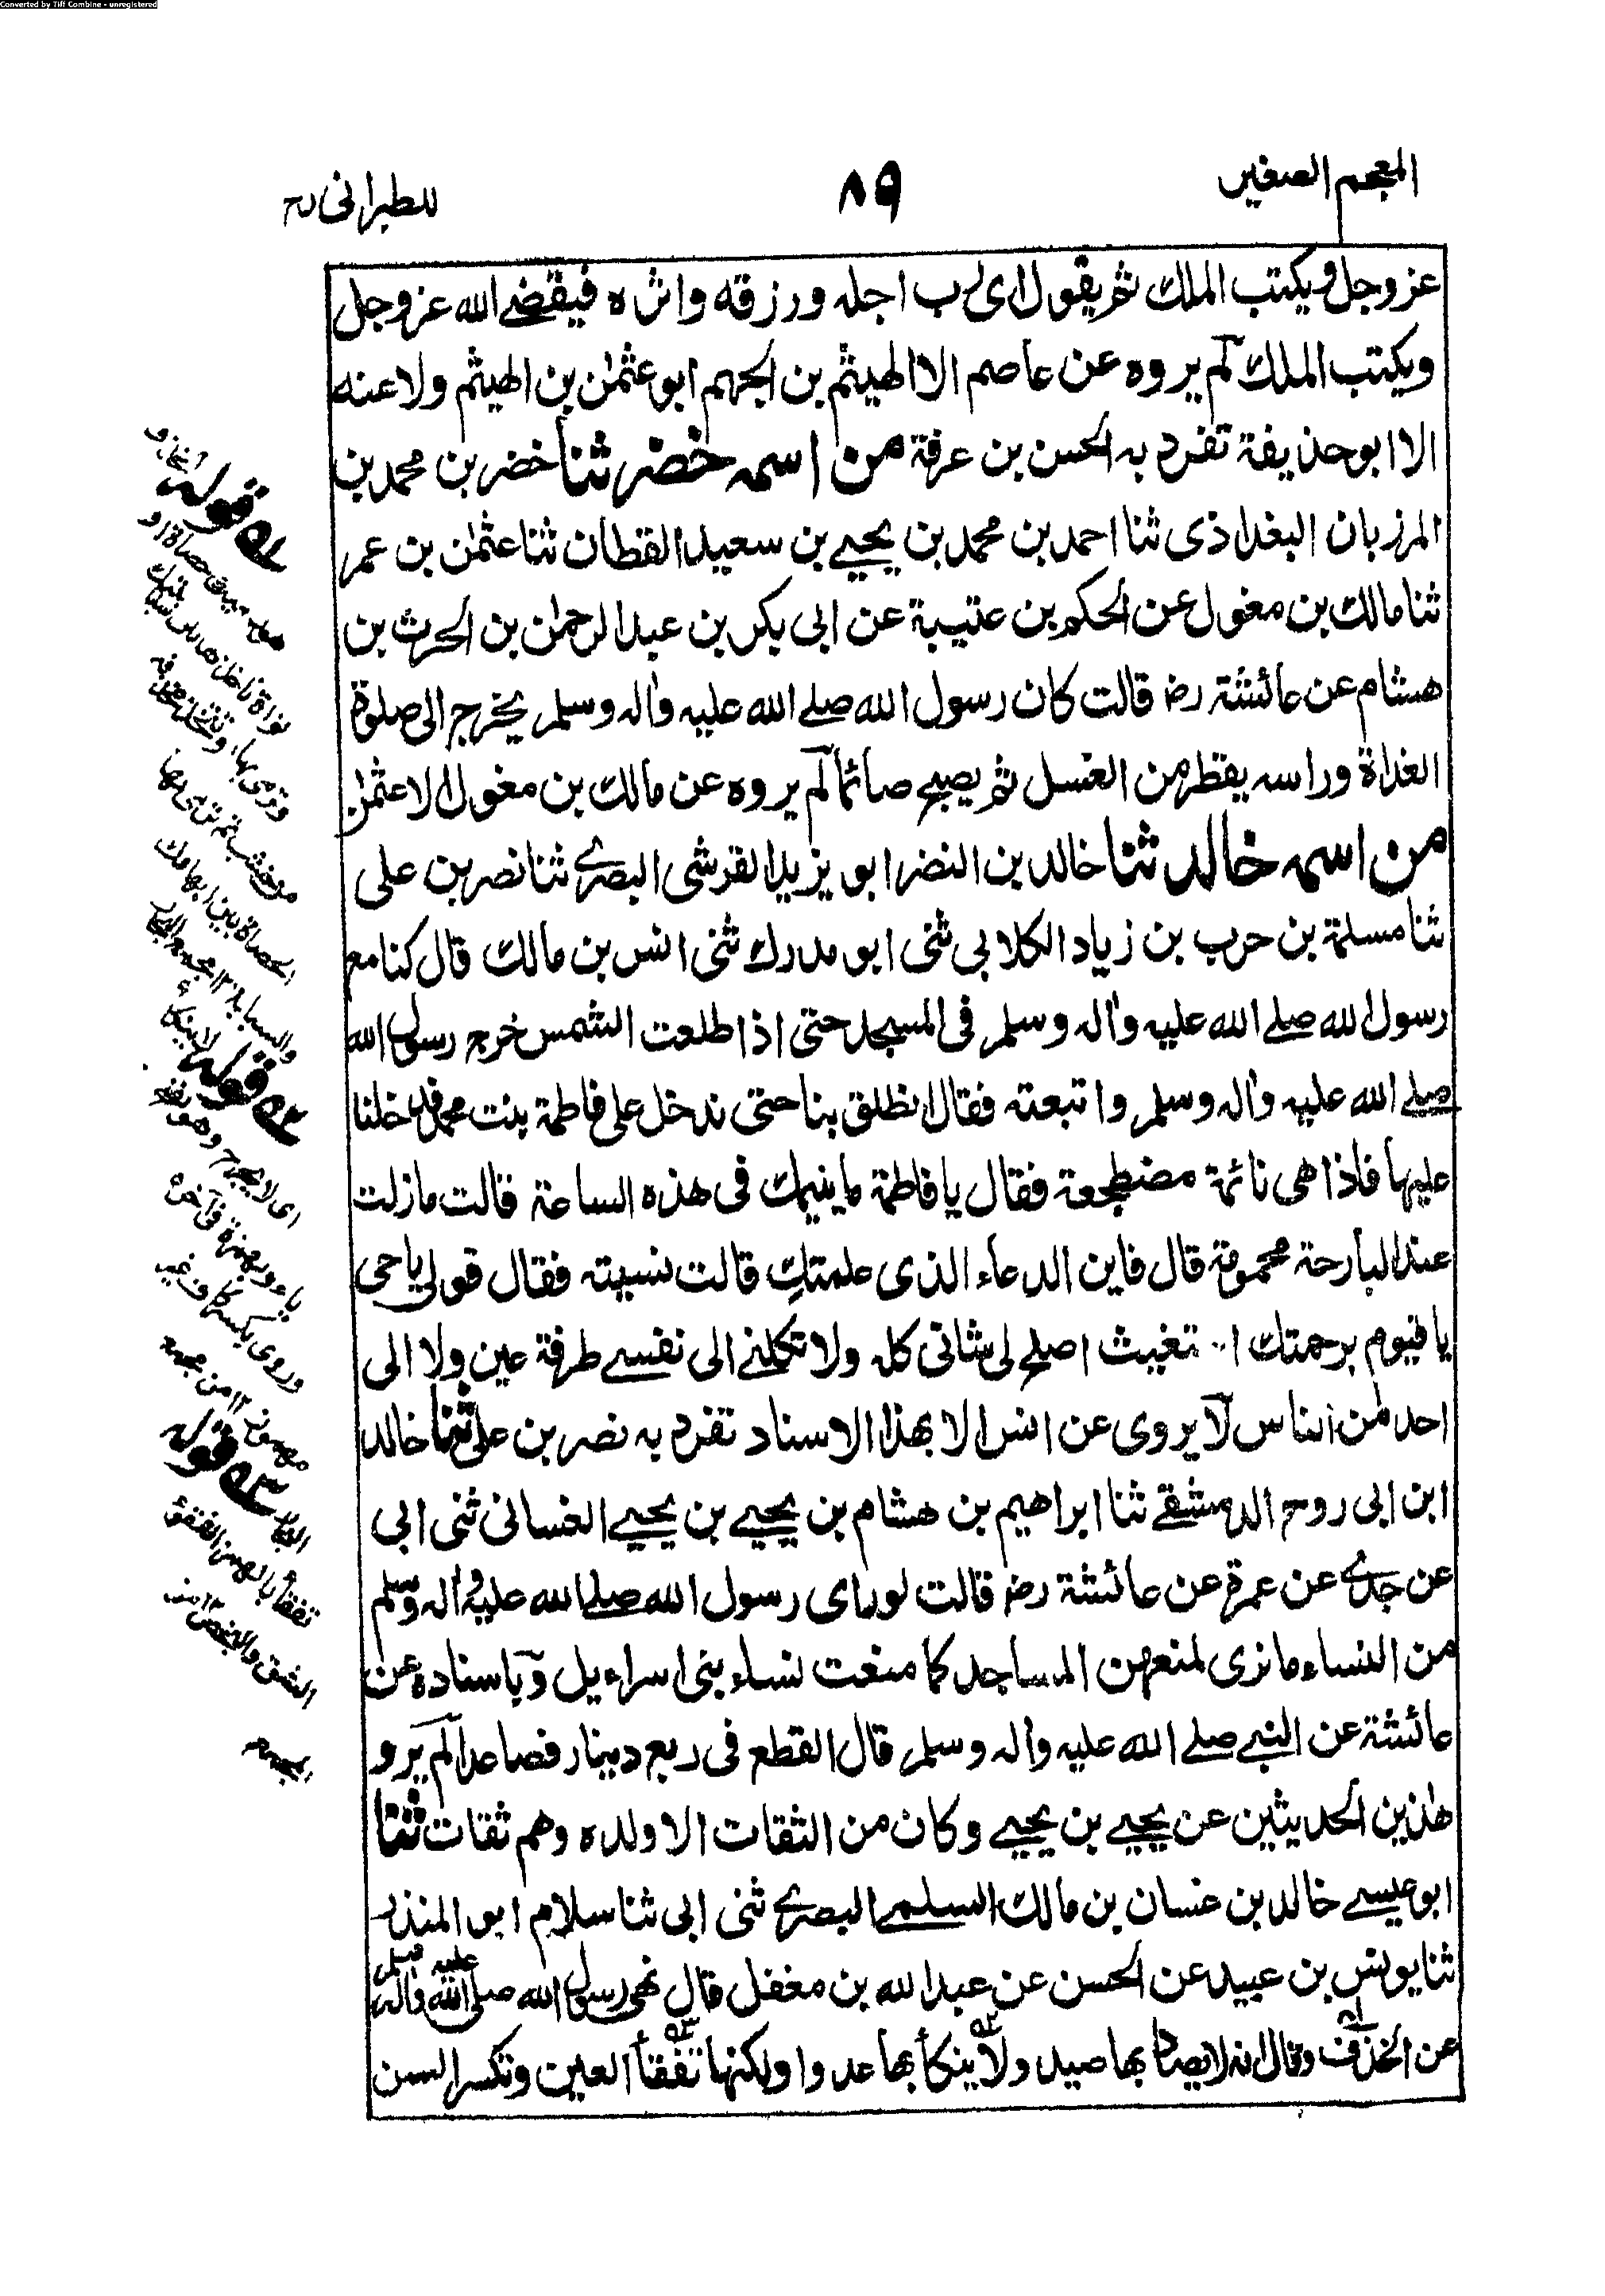 Converted by Tiff Combine - unregistered
المعجم الصغير
٨٩
للطبراني رح
عز وجل ويكتب الملك ثم يقول اى رب اجله ورزقه واثره فيقضے الله عز وجل
ويكتب الملك لم يروه عن عاصم الا الهيثم بن الجهم ابو عثمٰن بن الهيثم ولا عنه
الا ابو حذيفة تفرد به الحسن بن عرفة من اسمه خضر ثنا خضر بن محمد بن
المرزبان البغداذى ثنا احمد بن محمد بن يحيے بن سعيد القطان ثنا عثمٰن بن عمر
ثنا مالك بن مغول عن الحكم بن عتيبة عن ابى بكر بن عبد الرحمٰن بن الحرث بن
هشام عن عائشة رض قالت كان رسول الله صلے الله عليه واٰله وسلم يخرج الى صلوة
الغداة وراسه يقطر من الغسل ثم يصبح صائما لم يروه عن مالك بن مغول الا عثمٰن
من اسمه خالد ثنا خالد بن النضر ابو يزيد القرشى البصرے ثنا نصر بن على
ثنا مسلمة بن حرب بن زياد الكلابى ثنى ابو مدرك ثنى انس بن مالك قال كنا مع
رسول الله صلے الله عليه واٰله وسلم فى المسجد حتى اذا طلعت الشمس خرج رسول الله
صلے الله عليه واٰله وسلم واتبعته فقال انطلق بنا حتى ندخل على فاطمة بنت محمد فدخلنا
عليها فاذا هى نائمة مضطجعة فقال يا فاطمة ما ينيمك فى هذه الساعة قالت ما زلت
عند البارحة محمومة قال فاين الدعاء الذى علمتكِ قالت نسيته فقال قولى يا حى
يا قيوم برحمتك ا.. تغيث اصلح لى شانى كله ولا تكلنے الى نفسے طرفة عين ولا الى
احد من الناس لا يروى عن انس الا بهذا الاسناد تفرد به نصر بن على ثنا خالد
ابن ابى روح الدمشقے ثنا ابراهيم بن هشام بن يحيے بن يحيے الغسانى ثنى ابى
عن جدے عن عمرة عن عائشة رض قالت لو راى رسول الله صلے الله عليه واٰله وسلم
من النساء ما نرى لمنعهن المساجد كما منعت نساء بنى اسراءيل وباسناده عن
عائشة عن النبے صلے الله عليه واٰله وسلم قال القطع فى ربع دينار فصاعدا لم يرو
هٰذين الحديثين عن يحيے بن يحيے وكان من الثقات الا ولده وهم ثقات ثنا
ابو عيسے خالد بن غسان بن مالك السلمے البصرے ثنى ابى ثنا سلام ابو المنذر
ثنا يونس بن عبيد عن الحسن عن عبد الله بن مغفل قال نهى رسول الله صلى الله عليه واٰله وسلم
عن الخذف وقال انه لا يصاد بها صيد ولا ينكأ بها عدوا ولكنها تفقأ العين وتكسر السن
له قوله الخذف
هو رميك حصاة او
نواة تاخذها بين سبابتيك
وترمى بها، وتتخذ مخذفة
من خشب ثم ترمى بها
الحصاة بين ابهامك
والسبابة ١٢ مجمع البحار
٥٢ قوله لا ينكأ
اى لا يجرح وهو
وروى بكسر كاف غير
مهموز ١٢ من مجمعه
٥٣ قوله
تفقأ بالهمز الفقؤ
الشق والبخص ١٢ من
المجمع